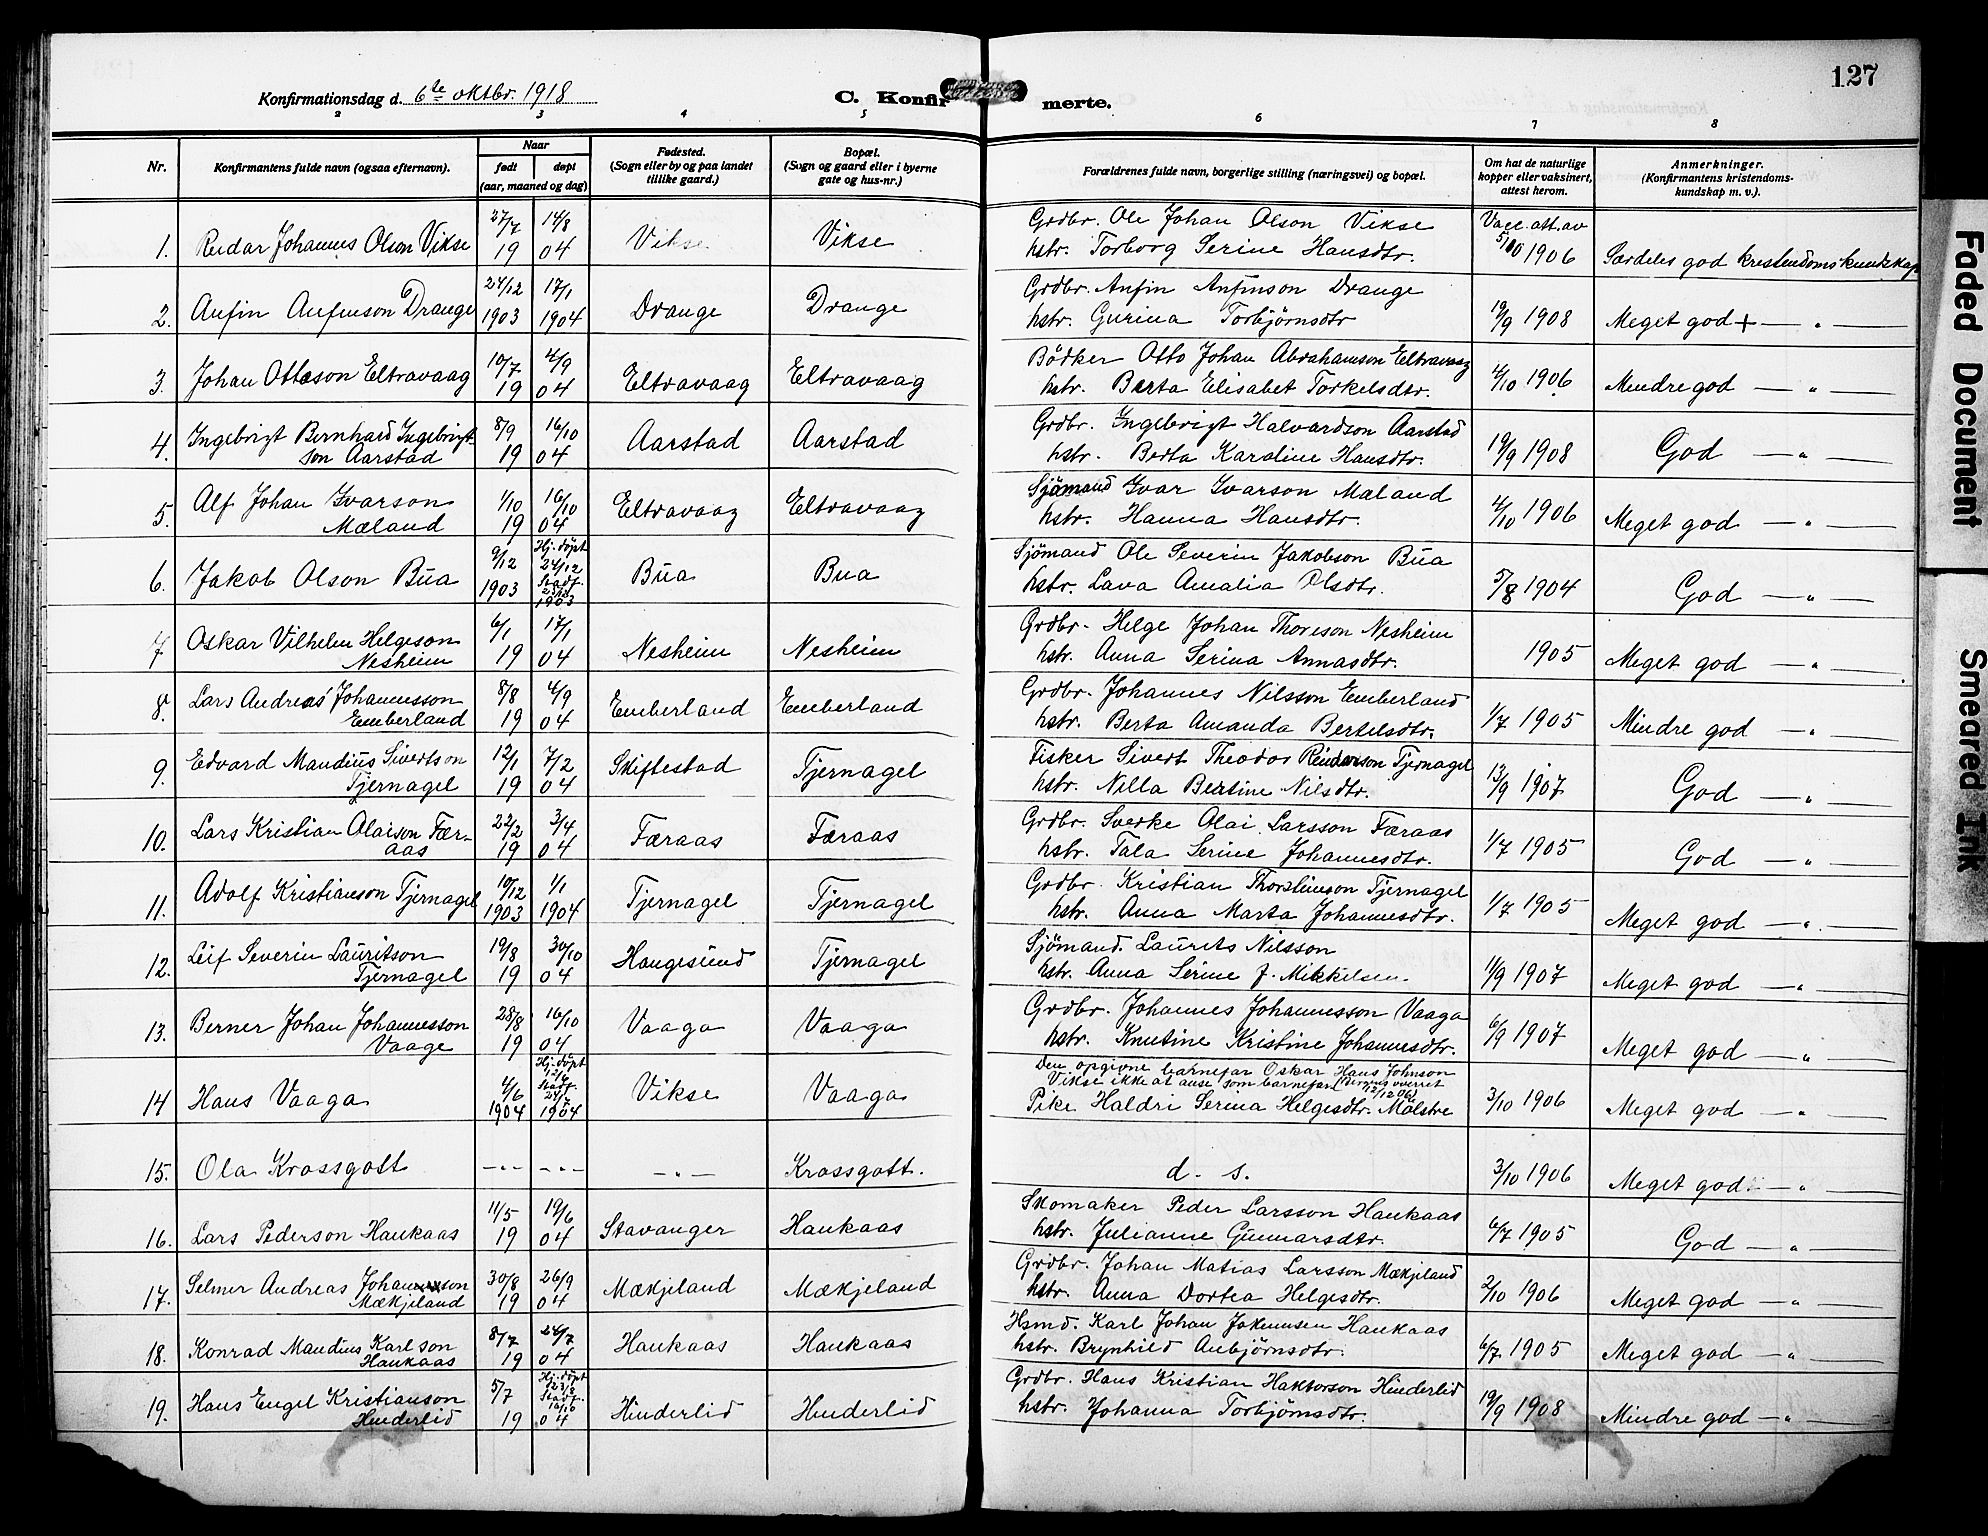 127
Konfirmationsdag d. 6te oktbr. 1918
C. Konfirmerte.
2 3 4 5 6 7 8
Nr. Konfirmantens fulde navn (ogsaa efternavn). Naar født døpt (aar, maaned og dag) Fødested. (Sogn eller by og paa landet tillike gaard.) Bopæl. (Sogn og gaard eller i byerne gate og hus-nr.) Forældrenes fulde navn, borgerlige stilling (næringsvei) og bopæl. Om hat de naturlige kopper eller vaksinert, attest herom. Anmerkninger. (Konfirmantens kristendomskundskap m. v.).
1. Reidar Johannes Olson Vikse 27/7 14/8 19 04 Vikse Vikse Grdbr. Ole Johan Olson Vikse
hstr. Torborg Serine Hansdtr. Vacc. att. av 5/10 1906 Særdeles god kristendomskundskap
2. Anfin Anfinson Drange 24/12 1903 17/1 1904 Drange Drange Grdbr. Anfin Anfinson Drange
hstr. Gurina Torbjörnsdtr 19/9 1908 Meget god + — „ —
3. Johan Ottoson Eltravaag 10/7 4/9 19 04 Eltravaag Eltravaag Bödker Otto Johan Abrahamson Eltravaag
hstr. Berta Elisabet Torkelsdtr. 4/10 1906 Mindre god — „
4. Ingebrigt Bernhard Ingebrigtson Aarstad 8/9 16/10 19 04 Aarstad Aarstad Grdbr. Ingebrigt Halvardson Aarstad
hstr. Berta Karoline Hansdtr. 19/9 1908 God — „ —
5. Alf Johan Ivarson Mæland 1/10 16/10 19 04 Eltravaag Eltravaag Sjömand Ivar Ivarson Mæland
hstr. Hanna Hansdtr. 4/10 1906 Meget god — „ —
6. Jakob Olson Bua 9/12 1903 Hj. döpt 24/12 Stadf. 1903 Bua Bua Sjömand Ole Severin Jakobson Bua
hstr. Lava Amalia Olsdtr. 5/8 1904 God — „ —
7. Oskar Vilhelm Helgeson Nesheim 6/1 17/1 19 04 Nesheim Nesheim Grdbr. Helge Johan Thoreson Nesheim
hstr. Anna Serina Annasdtr. 1905 Meget god — „ —
8. Lars Andreas Johannesson Emberland 8/8 4/9 19 04 Emberland Emberland Grdbr. Johannes Nilsson Emberland
hstr. Berta Amanda Bertelsdtr. 1/7 1905 Mindre god — „ —
9. Edvard Mandius Sivertson Tjernagel 12/1 7/2 19 04 Skiftestad Tjernagel Fisker Sivert Theodor Reinderson Tjernagel
hstr. Nilla Bertine Nilsdtr. 13/9 1907 God — „ —
10. Lars Kristian Olaison Færaas 22/2 3/4 19 04 Færaas Færaas Grdbr. Sverke Olai Larsson Færaas
hstr. Tala Serine Johannesdtr. 1/7 1905 God — „ —
11. Adolf Kristianson Tjernagel 10/12 1903 1/1 1904 Tjernagel Tjernagel Grdbr. Kristian Thorsteinson Tjernagel
hstr. Anna Marta Johannesdtr. 1/7 1905 Meget god — „ —
12. Leif Severin Lauritson Tjernagel 19/8 30/10 19 04 Haugesund Tjernagel Sjömand. Laurits Nilsson
hstr. Anna Serine f. Mikkelsen. 11/9 1907 Meget god — „
13. Berner Johan Johannesson Vaage 28/8 16/10 19 04 Vaaga Vaaga Grdbr. Johannes Johannesson Vaaga
hstr. Knutine Kristine Johannesdtr. 6/9 1907 Meget god — „
14 Hans Vaaga 4/6 1904 Hj. döpt 12/6 Stadf. 24/7 1904 Vikse Vaaga Den opgivne barnefar Oskar Hans Johnson
Vikse ikke at anse som barnefar 12/12 06)
Pike Haldri Serina Helgesdtr. Mölstre 3/10 1906 Meget god — „
15. Ola Krossgott — „ — — „ — — „ — Krossgott. d. s. 3/10 1906 Meget god — „ —
16. Lars Pederson Haukaas 11/5 19/6 19 04 Stavanger Haukaas Skomaker Peder Larsson Haukaas
hstr. Julianne Gunnarsdtr. 6/7 1905 God — „ —
17. Selmer Andreas Johanson Mækjeland 30/8 26/9 19 04 Mækjeland Mækjeland Grdbr. Johan Matias Larsson Mækjeland
hstr. Anna Dortea Helgesdtr. 2/10 1906 Meget god — „ —
18. Konrad Mandius Karlson Haukaas 8/7 24/7 19 04 Haukaas Haukaas Hsmd. Karl Johan Haukaas
hstr. Brynhild Anbjörnsdtr. 6/7 1905 Meget god — „ —
19. Hans Engel Kristianson Hinderlid 5/7 Hj. döpt Stadf. 16/10 19 04 Hinderlid Hinderlid Grdbr. Hans Kristian Haktorson Hinderlid
hstr. Johanna Torbjörnsdtr. 19/9 1908 Mindre god — „ —
Faded Document
Smeared Ink